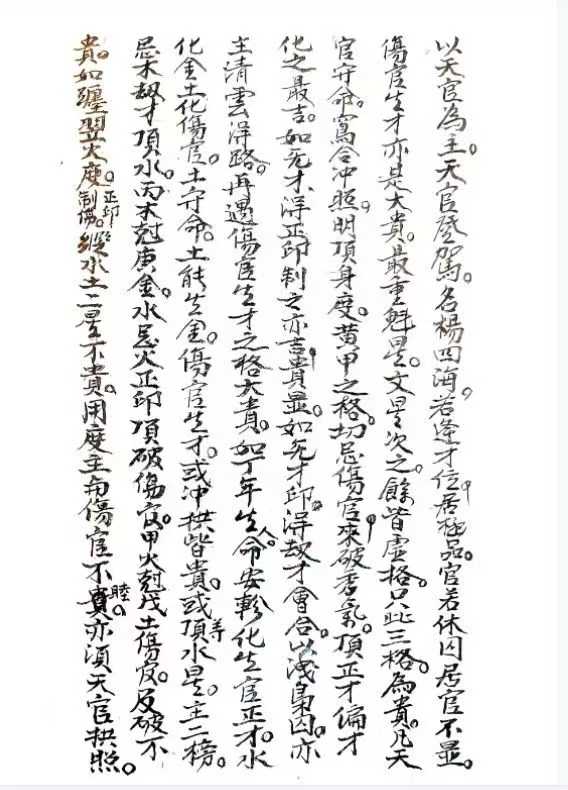 以天官為主。天官登駕。名楊四海。若逢才位。居極品。官若休囚居官不显。
傷官生才亦是大貴。最重魁星。文星次之。餘皆虛格。只此三格。為貴。凡天
官守命。寫合冲照。明頂身度。黃甲之格。切忌傷官來破秀氣。頂正才偏才
化之最吉。如无才。得正印制之亦吉。貴显。如无才印。得刼才會合。以洩梟囚。亦
主清雲得路。再遇傷官生才之格大貴。如丁年生人。命安軫化生官正才。水
化金土化傷官。土守命。土能生金。傷官生才。或冲拱皆貴。或頂水孛星。主二榜。
忌木刼才頂水。丙木尅庚金。水忌火正印頂破傷官。甲火尅戊土傷官。反破不
貴。如纏翌火度。正印制傷。縱水土二星不貴。用度主與傷官不睦。亦須天官拱照。